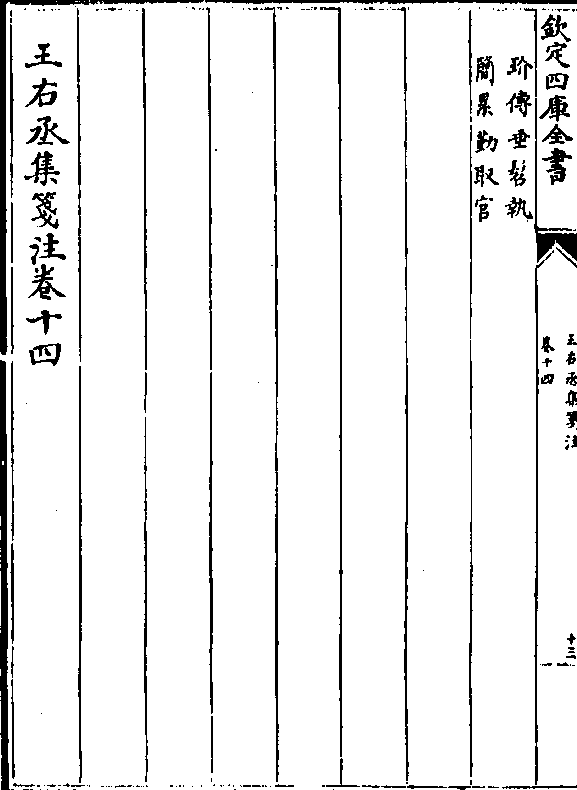 欽定四庫全書
王右丞集箋注
卷十四
十三
玠傳垂髫執
簡累勤取官
王右丞集箋注卷十四